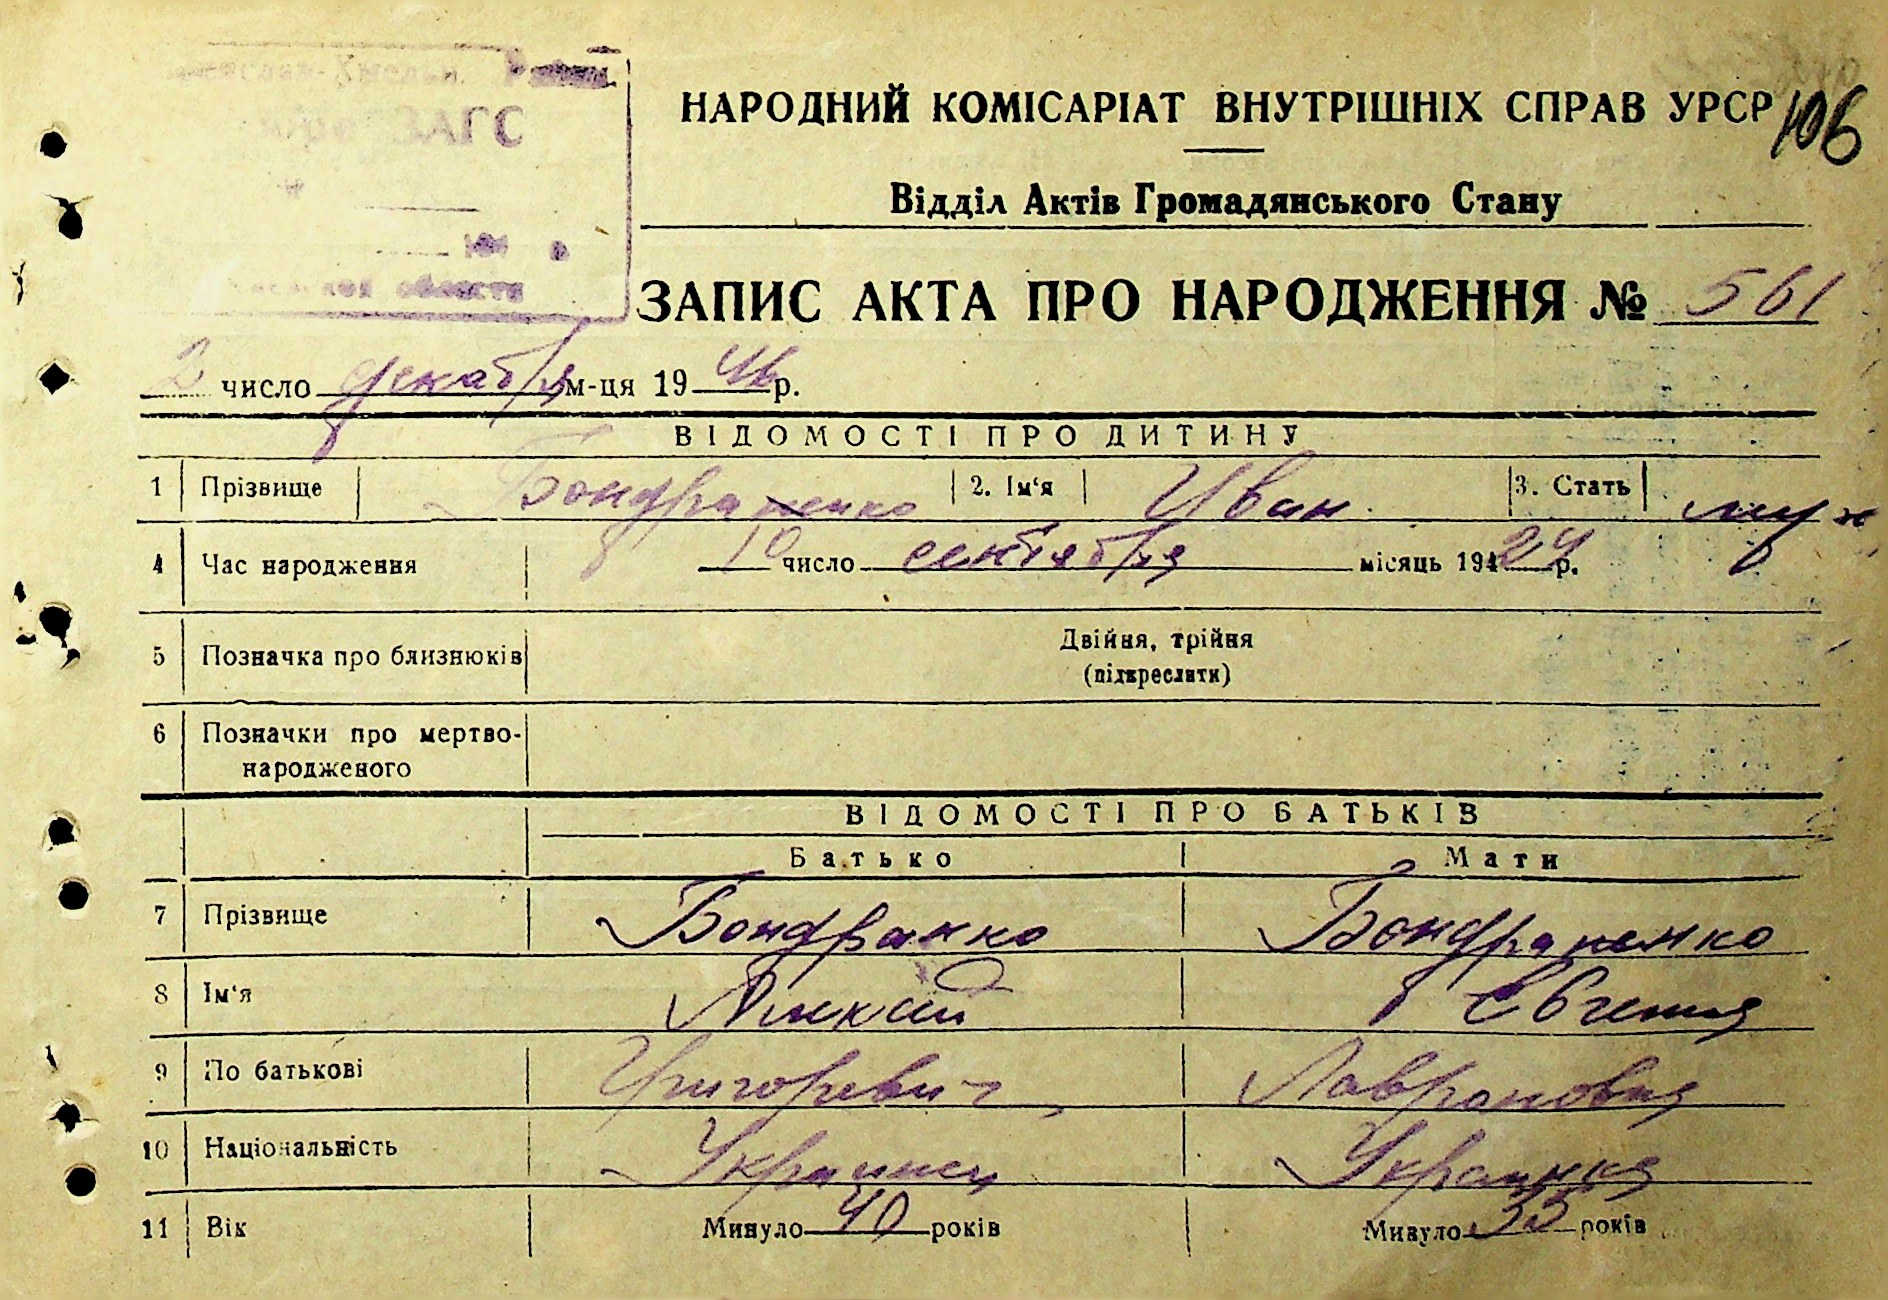 ЗАГС
области
НАРОДНИЙ КОМІСАРІАТ ВНУТРІШНІХ СПРАВ УРСР
106
Відділ Актів Громадянського Стану
ЗАПИС АКТА ПРО НАРОДЖЕННЯ № 561
2 число декабря м-ця 1946 р.
ВІДОМОСТІ ПРО ДИТИНУ
1 Прізвище Бондраненко 2. Ім'я Иван 3. Стать муж
4 Час народження 10 число сентября місяць 194 24 р.
5 Позначка про близнюків Двійня, трійня
(підкреслити)
6 Позначки про мертво-
народженого
ВІДОМОСТІ ПРО БАТЬКІВ
Батько Мати
7 Прізвище Бондранко Бондраненко
8 Ім'я Евгения
9 По батькові Григоревич Лаврановня
10 Національність Украинец Украинка
11 Вік Минуло 40 років Минуло 35 років